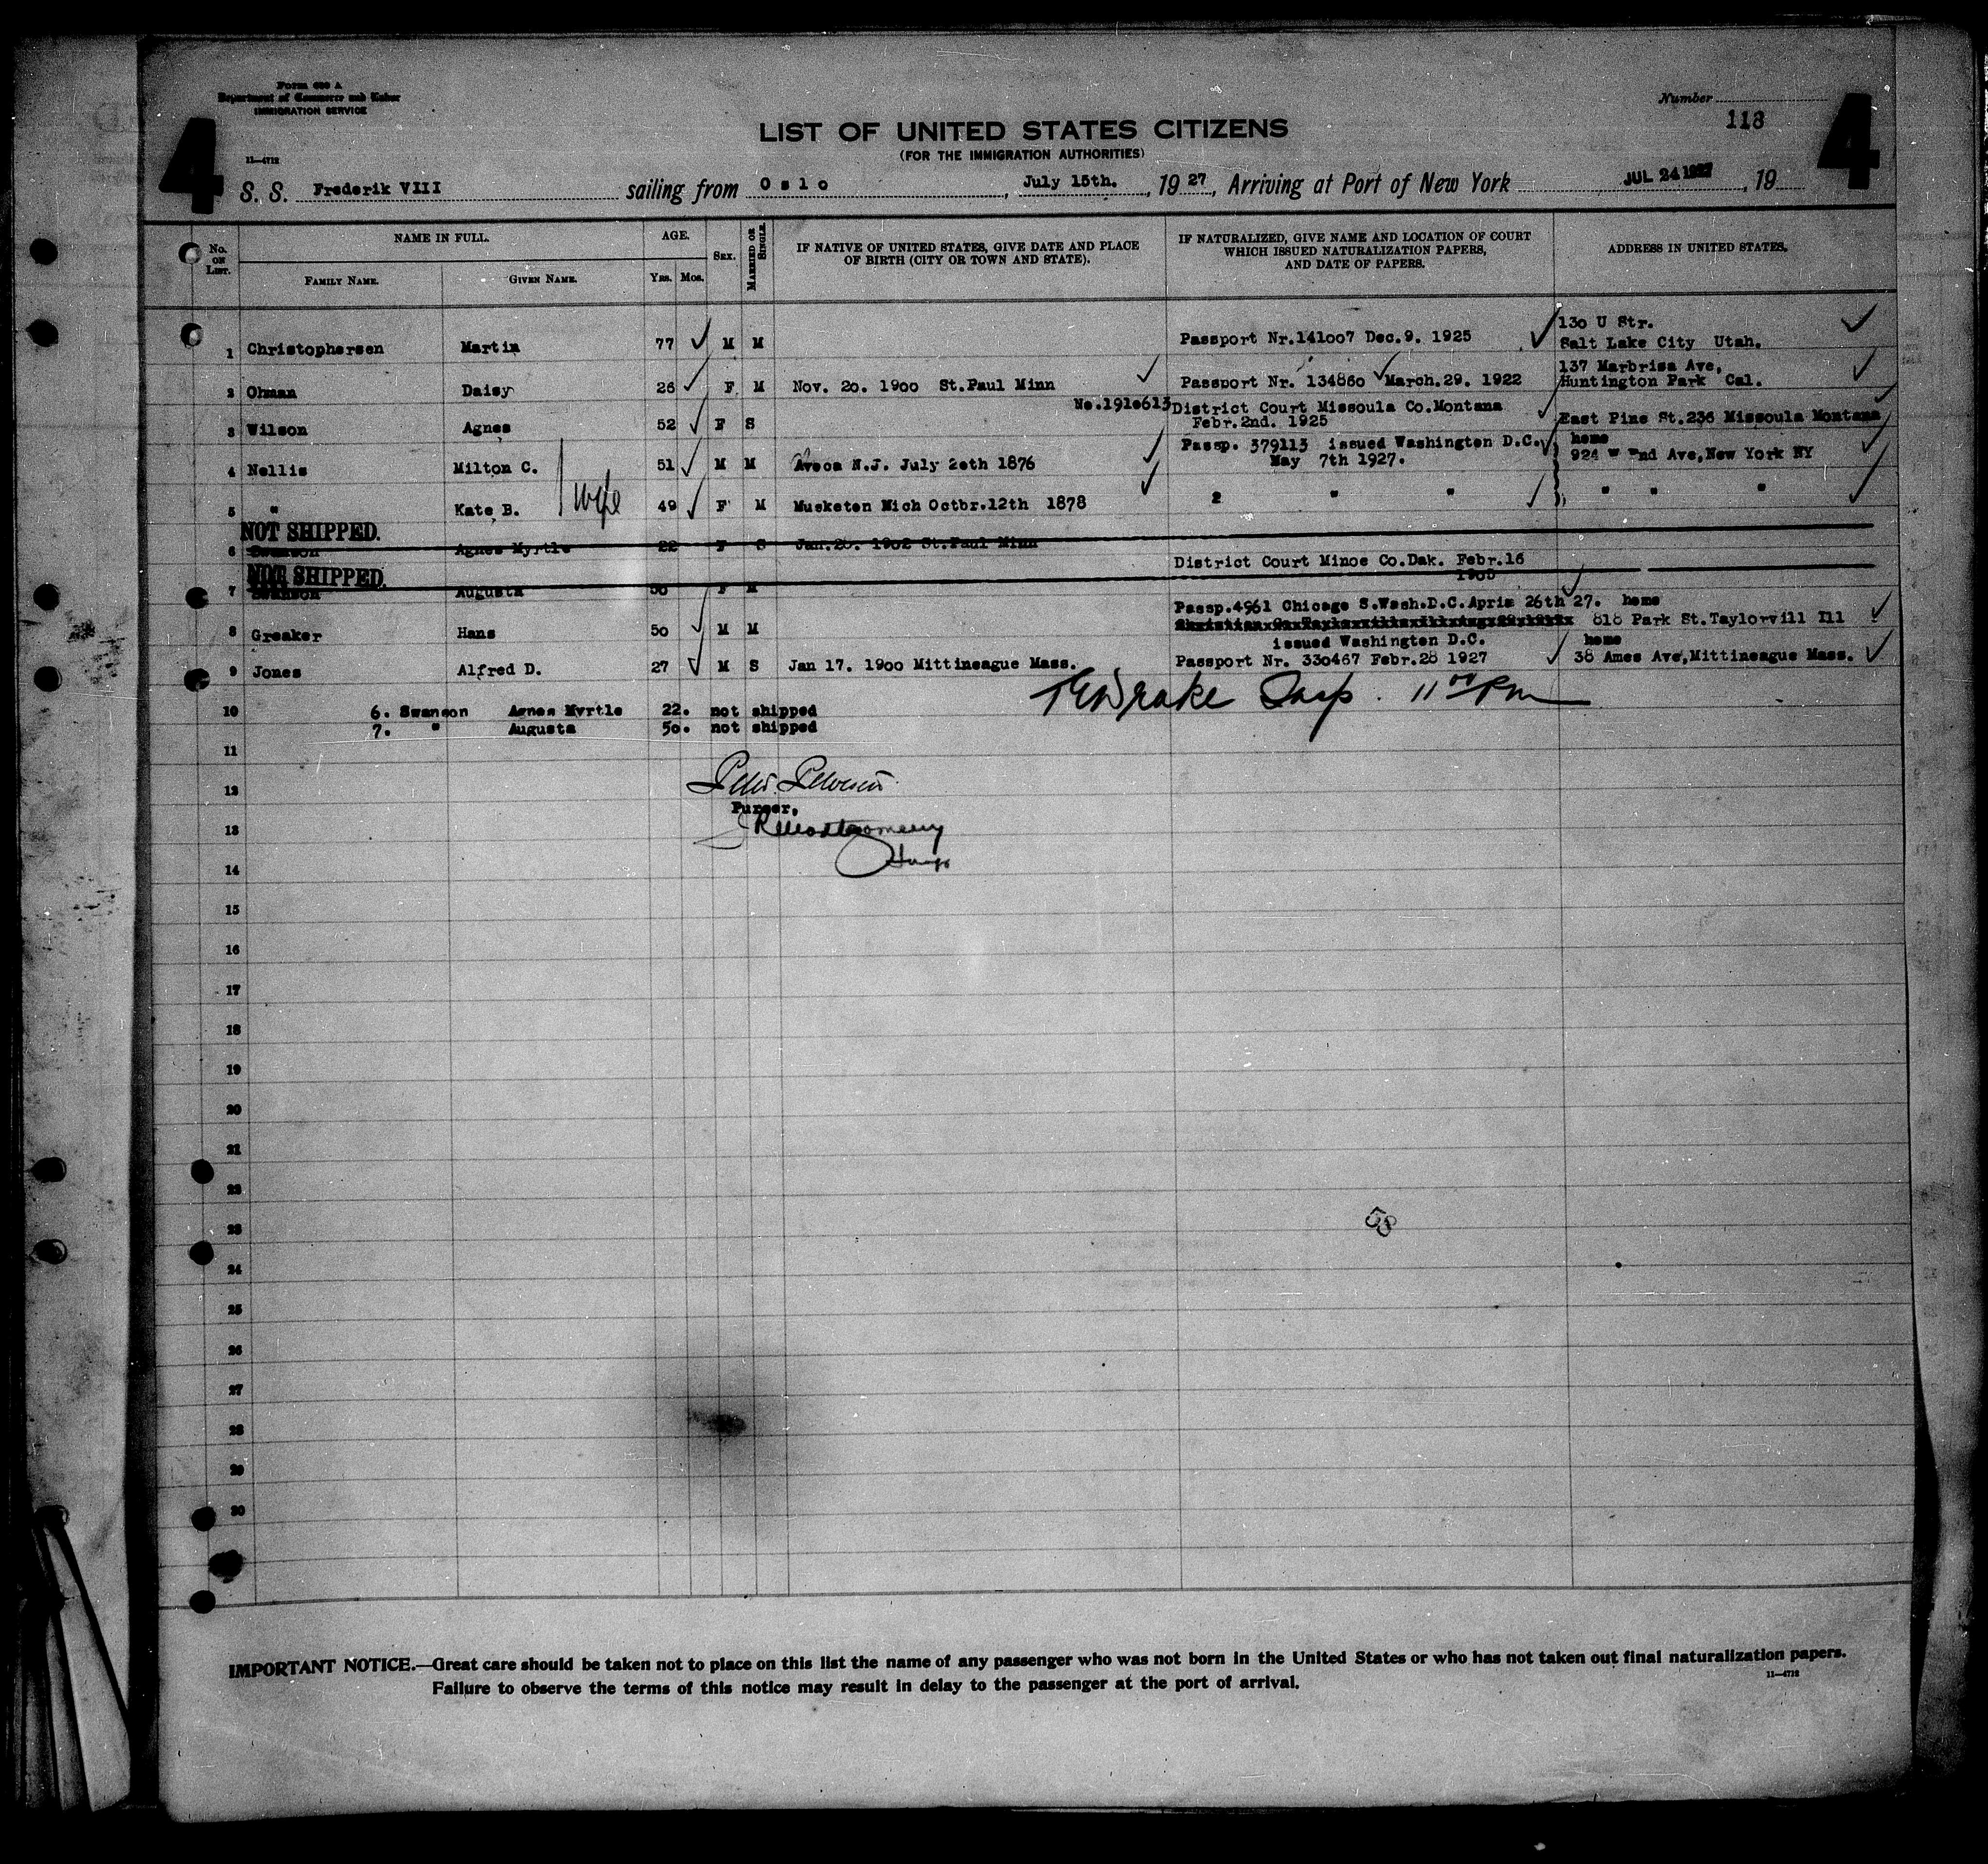 Form 630 A
Department of Commerce and Labor
IMMIGRATION SERVICE
Number
118
4
4
LIST OF UNITED STATES CITIZENS
(FOR THE IMMIGRATION AUTHORITIES)
11—4712
S. S. Frederik VIII sailing from Oslo, July 15th., 1927, Arriving at Port of New York JUL 24 1927, 19
No. on List.
NAME IN FULL.
AGE.
Sex.
Married or Single.
IF NATIVE OF UNITED STATES, GIVE DATE AND PLACE OF BIRTH (CITY OR TOWN AND STATE).
IF NATURALIZED, GIVE NAME AND LOCATION OF COURT WHICH ISSUED NATURALIZATION PAPERS, AND DATE OF PAPERS.
ADDRESS IN UNITED STATES.
Family Name.
Given Name.
Yrs.
Mos.
1 Christophersen Martin 77 M M Passport Nr.141007 Dec.9. 1925 130 U Str. Salt Lake City Utah.
2 Ohman Daisy 26 F M Nov. 20. 1900 St.Paul Minn Passport Nr. 134860 March.29. 1922 137 Marbrisa Ave, Huntington Park Cal.
3 Wilson Agnes 52 F S No.1910613 District Court Missoula Co.Montana Febr.2nd. 1925 East Pine St.236 Missoula Montana
4 Nellis Milton C. 51 M M Avoca N.J. July 20th 1876 Passp. 379113 issued Washington D.C. May 7th 1927. home 924 W End Ave,New York NY
wife
5 " Kate B. 49 F M Musketon Mich Octbr.12th 1878 2 " " " " "
NOT SHIPPED.
6 Swanson Agnes Myrtle 22 F S Jan.20. 1902 St.Paul Minn
NOT SHIPPED.
7 Swanson Augusta 50 F M District Court Minoe Co.Dak. Febr.16 1905
8 Greaker Hans 50 M M Passp.4961 Chicago S.Wash.D.C.Apris 26th 27. home 818 Park St.Taylorvill Ill
9 Jones Alfred D. 27 M S Jan 17. 1900 Mittineague Mass. issued Washington D.C. Passport Nr. 330467 Febr.28 1927 home 38 Ames Ave,Mittineague Mass.
Drake Insp. 11 00 PM
10 6. Swanson Agnes Myrtle 22. not shipped
7. " Augusta 50. not shipped
11
12
Purser.
13 Montgomery
14
15
16
17
18
19
20
21
22
23
58
24
25
26
27
28
29
30
IMPORTANT NOTICE.—Great care should be taken not to place on this list the name of any passenger who was not born in the United States or who has not taken out final naturalization papers.
Failure to observe the terms of this notice may result in delay to the passenger at the port of arrival.
11—4712